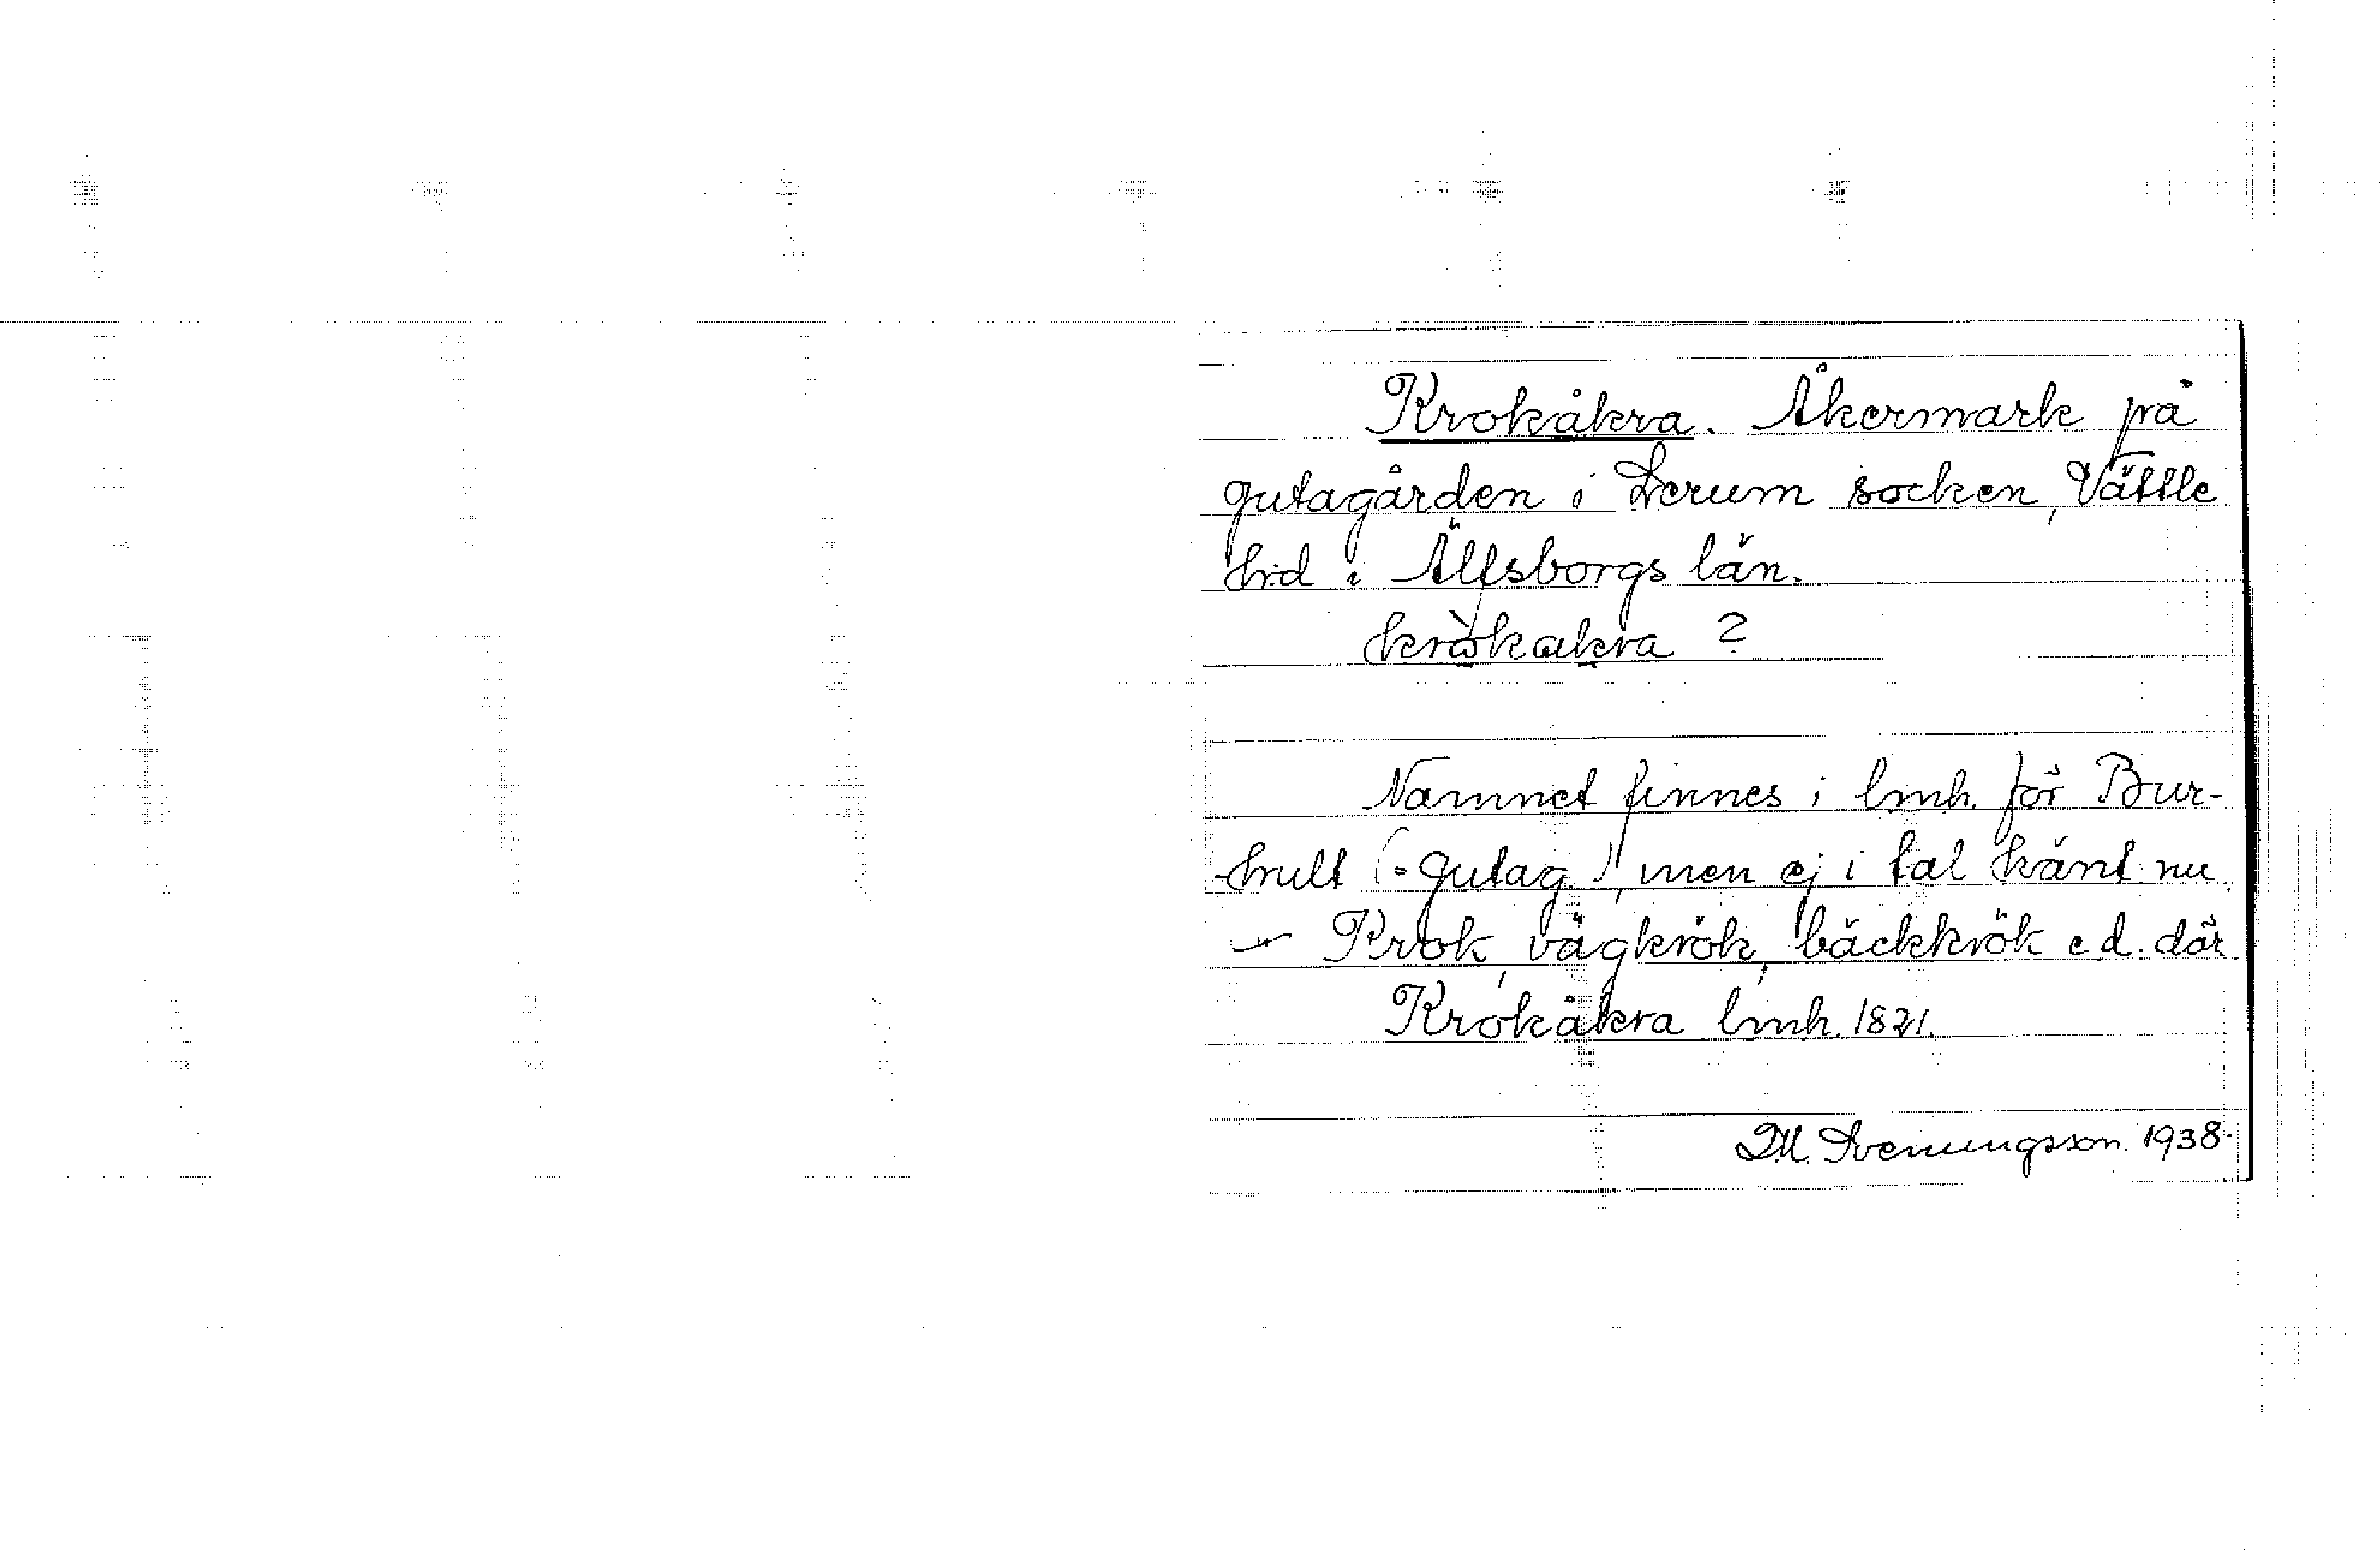 Krokåkra. Åkermark på
gutagården i Lerum socken, Vättle
hrd i Älfsborgs län.
krokakra ?
Namnet finnes i lmh. för Bur-
hult (= gutag.), men ej i tal känt nu.
Krok, vägkrök, bäckkrök e.d. där
Krokåkra lmh. 1821.
D.M. Svenungsson. 1938.